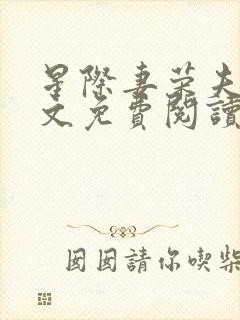 星際妻荣夫
文免費閱讀
囡囡請你喫柴